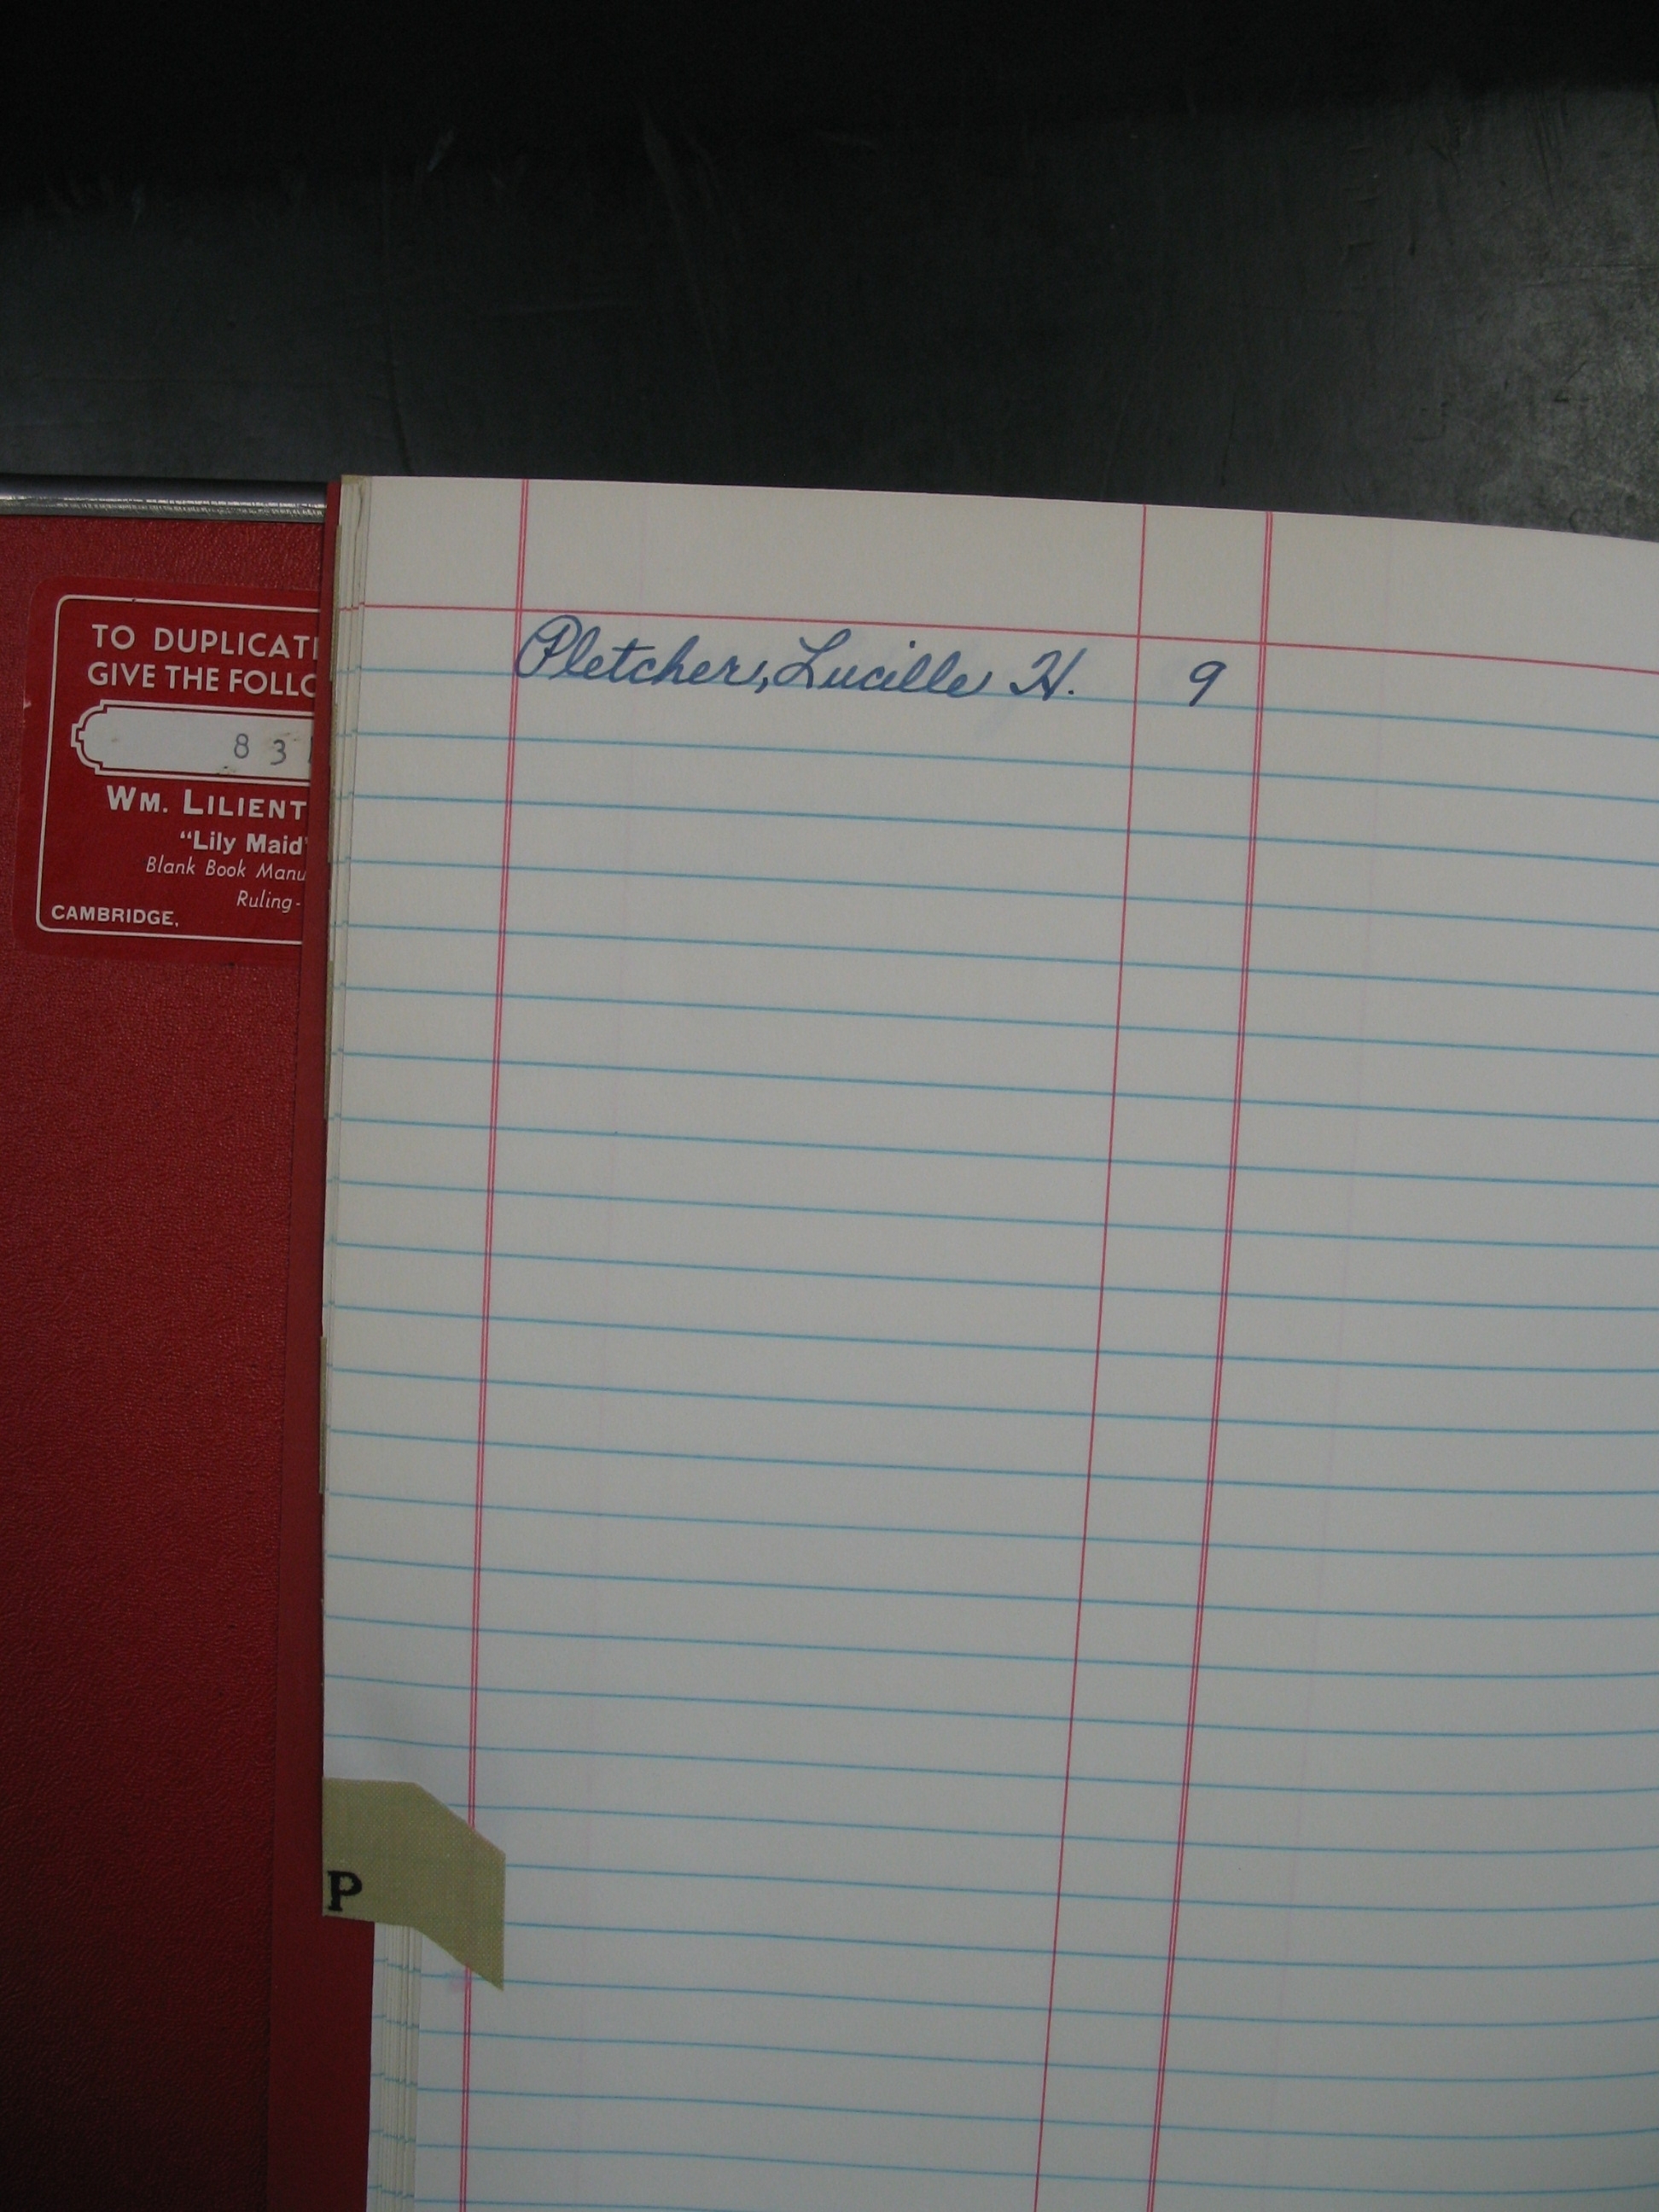 TO DUPLICAT
GIVE THE FOLLO
8 3
WM. LILIENT
"Lily Maid"
Blank Book Manu
Ruling-
CAMBRIDGE,
Pletcher, Lucille H. 9
P